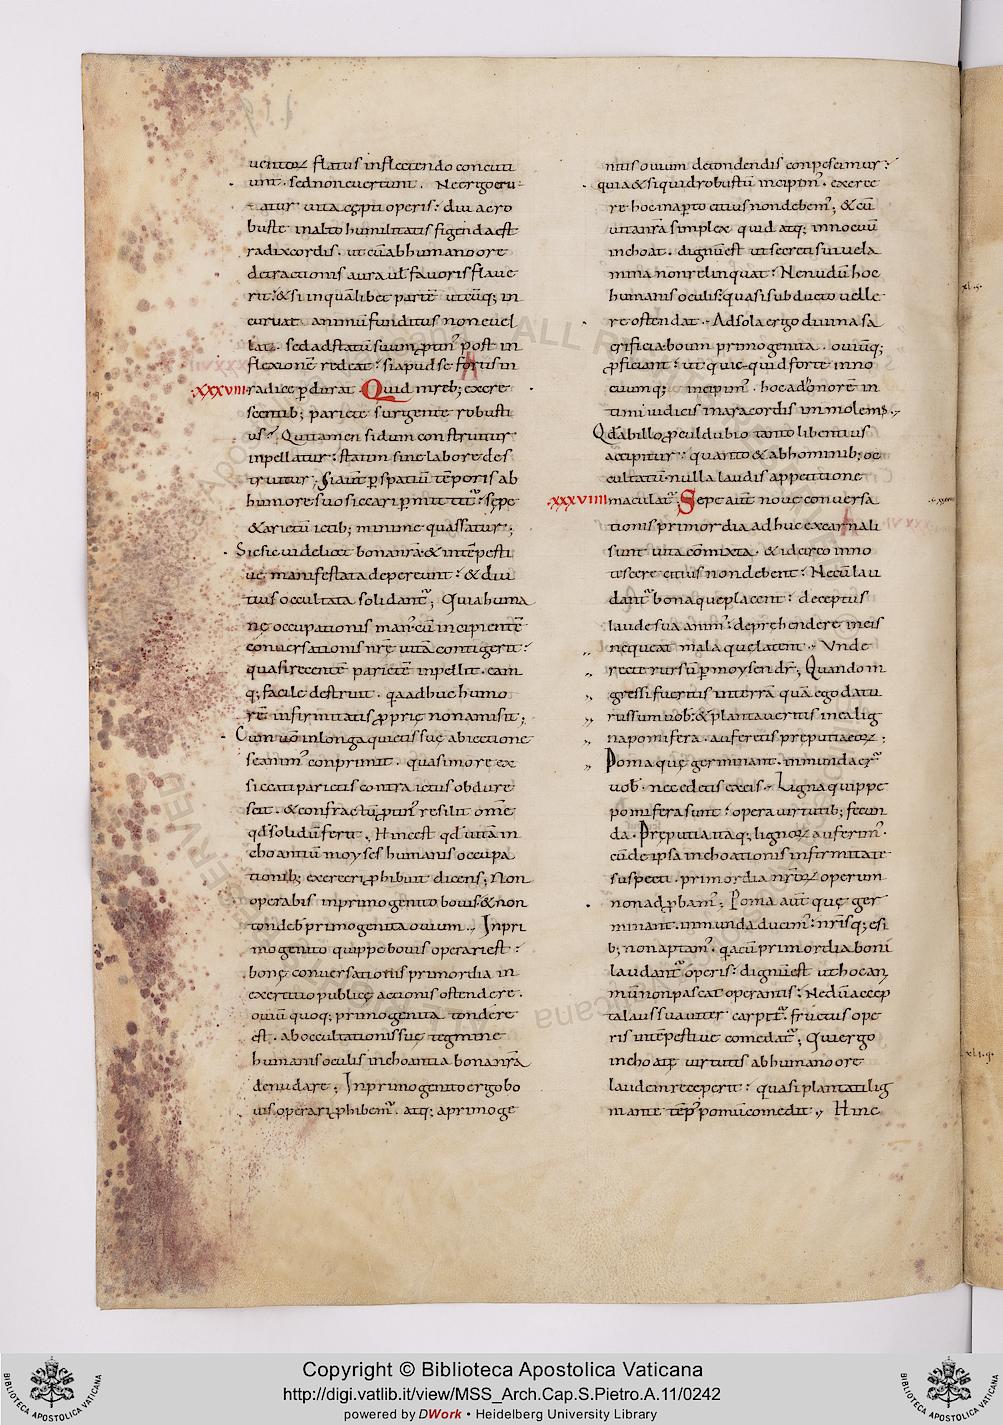 uentoꝝ flatus inflectendo concuti
unt. sed non euertunt. Ne ergo eru
atur uita cępti operis: diu ac ro
buste in alto humilitatis figenda est
radix cordis. ut cū ab humano ore
detractionis aura uł fauoris flaue
rit: & si in quālibet partē utcūq; in
curuat animū funditus non euel
lat. sed ad statū suū ꝓtin' post in
flexionē redeat: si apud se fortis in
xxxviii radice ꝑdurat. Quid in reb; exere
scentib; pariete surgente robusti
us? Qui tamen si dum construitur
inpellatur: statim sine labore des
truitur. Si aut ꝑ spatiū tēporis ab
humore suo siccari ꝑmittit': sępe
& arietū ictib; minime quassatur;
Sic sic uidelicet bona nr̄a & intēpesti
ue manifestata depereunt: & diu
tius occultata solidant'; Quia huma
nę occupationis man' cū incipientē
conuersationis nr̄ę uitā contigerit:
quasi recentē parietē inpellit. eam
q; facile destruit. q̄ adhuc humo
rē infirmitatis ꝓprię non amisit;
Cum uō in longa quietis suę abiectione
se anim' conprimit. quasi more ex
siccati parietis contra ictus obdure
scit. & confractū ꝓtin' resilit om̄e
qd̄ solidū ferit, Hinc est qd̄ uitā in
choantiū moyses humanis occupa
tionib; exerceri ꝓhibuit dicens; Non
operabis in primogenito bouis & non
tondeb' primogenita ouium. In pri
mogenito quippe bouis operari est:
bonę conuersationis primordia in
exercitio publicę actionis ostendere.
ouiū quoq; primogenita tondere
est. ab occultationis suę tegmine
humanis oculis inchoantia bona nr̄a
denudare; In primogenito ergo bo
uis operari ꝓhibem'. atq; a primoge
nitis ouium detondendis conpescimur:
quia & si quid robustū incipim'. exerce
re hoc in apto citius non debem'; & cū
uita nr̄a simplex quid atq; innocuū
inchoat. dignū est ut secreti sui uela
mina non relinquat: Ne nudū hoc
humanis oculis: quasi subducto uelle
re ostendat. Ad sola ergo diuina sa
crificia boum primogenita. ouiūq;
ꝓficiant: ut quicquid forte inno
cuumq; incipim'. hoc ad honorē in
timi iudicis in ara cordis immolem'.
Qd̄ ab illo ꝓcul dubio tanto libentius
accipitur: quanto & ab hominib; oc
cultatū nulla laudis appetitione
xxxviiii maculat'. Sepe aut̄ nouę conuersa
tionis primordia adhuc ex carnali
sunt uita cōmixta. & idcirco inno
tescere citius non debent: Ne cū lau
dant' bona que placent: deceptus
laude sua anim': deprehendere in eis
nequeat mala que latent. Unde
recte rursū ꝑ moysen dr̄; Quando in
gressi fueritis in terrā quā ego datu
rus sum uob': & plantaueritis in ea lig
na pomifera. auferetis preputia eoꝝ;
Poma quę germinant. inmunda er'
uob'. nec edetis ex eis. Ligna quippe
pomifera sunt: opera uirtutib; fecun
da. Preputia itaq; lignoꝝ auferim'.
cū de ipsa inchoationis infirmitate
suspecti. primordia nr̄oꝝ operum
non adꝓbam'; Poma aut̄ quę ger
minant. inmunda ducim': nr̄isq; esi
b; non aptam'. q̄a cū primordia boni
laudant' operis: dignū est ut hoc an
imū non pascat operantis: Ne dū accep
ta laus suauiter carpit': fructus ope
ris intēpestiue comedat'; Qui ergo
inchoatę uirtutis ab humano ore
laudem receperit: quasi plantati lig
ni ante tēp' pomū comedit. Hinc
Copyright © Biblioteca Apostolica Vaticana
http://digi.vatlib.it/view/MSS_Arch.Cap.S.Pietro.A.11/0242
powered by DWork • Heidelberg University Library
BIBLIOTECA APOSTOLICA VATICANA
BIBLIOTECA APOSTOLICA VATICANA